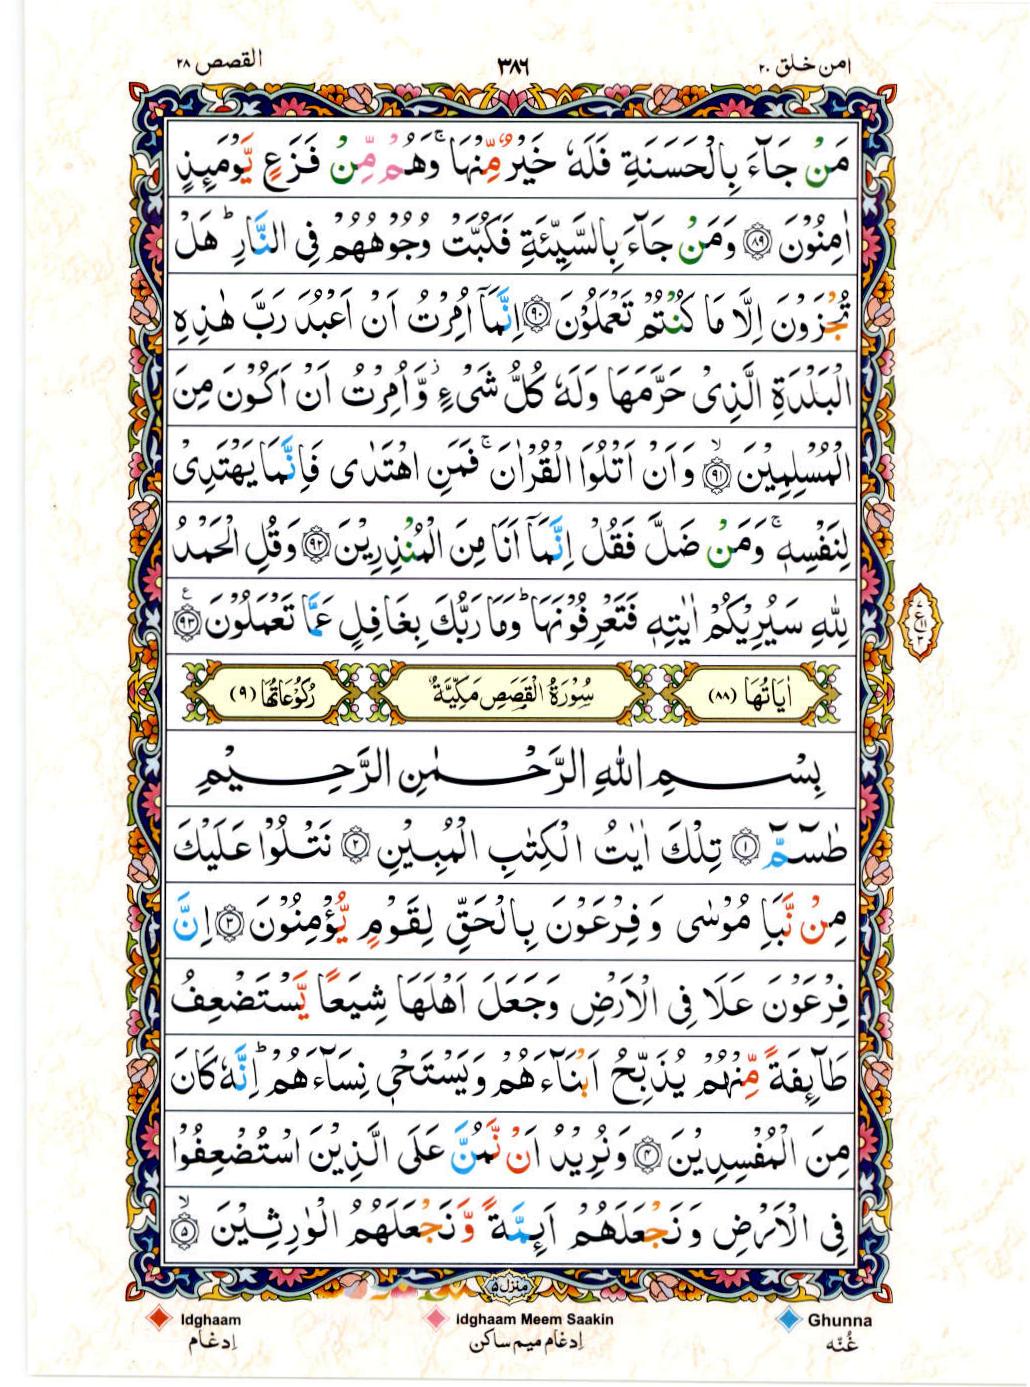 امن خلق ۲۰
۳۸۶
القصص ۲۸
مَنْ جَآءَ بِالْحَسَنَةِ فَلَهٗ خَيْرٌ مِّنْهَا ۚ وَهُمْ مِّنْ فَزَعٍ يَّوْمَىِٕذٍ
اٰمِنُوْنَ ﴿۸۹﴾ وَمَنْ جَآءَ بِالسَّيِّئَةِ فَكُبَّتْ وُجُوْهُهُمْ فِى النَّارِ ؕ هَلْ
تُجْزَوْنَ اِلَّا مَا كُنْتُمْ تَعْمَلُوْنَ ﴿۹۰﴾ اِنَّمَآ اُمِرْتُ اَنْ اَعْبُدَ رَبَّ هٰذِهِ
الْبَلْدَةِ الَّذِىْ حَرَّمَهَا وَلَهٗ كُلُّ شَىْءٍ ؗ وَّاُمِرْتُ اَنْ اَكُوْنَ مِنَ
الْمُسْلِمِيْنَ ۙ﴿۹۱﴾ وَاَنْ اَتْلُوَا الْقُرْاٰنَ ۚ فَمَنِ اهْتَدٰى فَاِنَّمَا يَهْتَدِىْ
لِنَفْسِهٖ ۚ وَمَنْ ضَلَّ فَقُلْ اِنَّمَآ اَنَا مِنَ الْمُنْذِرِيْنَ ﴿۹۲﴾ وَقُلِ الْحَمْدُ
لِلّٰهِ سَيُرِيْكُمْ اٰيٰتِهٖ فَتَعْرِفُوْنَهَا ؕ وَمَا رَبُّكَ بِغَافِلٍ عَمَّا تَعْمَلُوْنَ ﴿۹۳﴾ ع
اٰيَاتُهَا (۸۸) سُوْرَةُ الْقَصَصِ مَكِّيَّةٌ رُكُوْعَاتُهَا (۹)
بِسْمِ اللّٰهِ الرَّحْمٰنِ الرَّحِيْمِ
طٰسٓمّٓ ﴿۱﴾ تِلْكَ اٰيٰتُ الْكِتٰبِ الْمُبِيْنِ ﴿۲﴾ نَتْلُوْا عَلَيْكَ
مِنْ نَّبَاِ مُوْسٰى وَفِرْعَوْنَ بِالْحَقِّ لِقَوْمٍ يُّؤْمِنُوْنَ ﴿۳﴾ اِنَّ
فِرْعَوْنَ عَلَا فِى الْاَرْضِ وَجَعَلَ اَهْلَهَا شِيَعًا يَّسْتَضْعِفُ
طَآىِٕفَةً مِّنْهُمْ يُذَبِّحُ اَبْنَآءَهُمْ وَيَسْتَحْىٖ نِسَآءَهُمْ ؕ اِنَّهٗ كَانَ
مِنَ الْمُفْسِدِيْنَ ﴿۴﴾ وَنُرِيْدُ اَنْ نَّمُنَّ عَلَى الَّذِيْنَ اسْتُضْعِفُوْا
فِى الْاَرْضِ وَنَجْعَلَهُمْ اَىِٕمَّةً وَّنَجْعَلَهُمُ الْوٰرِثِيْنَ ۙ﴿۵﴾
منزل ۵
Idghaam idghaam Meem Saakin Ghunna
اِدغام اِدغام میم ساکن غُنّه